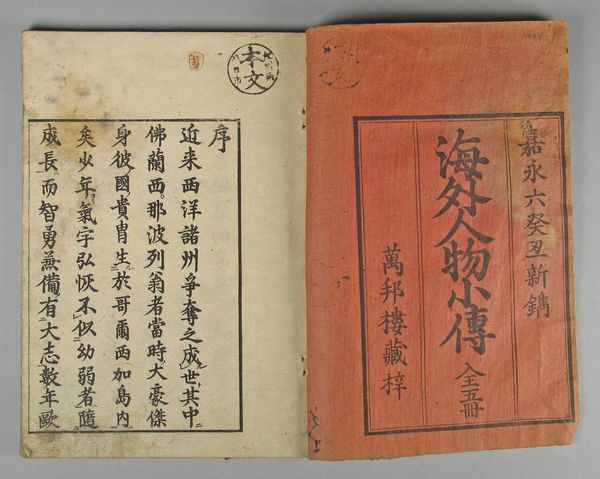 嘉永六癸丑新鐫
海外人物小傳 全五冊
萬邦樓藏梓
本文
序
近来西洋諸州爭奪之成世其中
佛蘭西那波列翁者當時大豪傑
身彼國貴冑生於哥爾西加島内
矣少年氣字弘恢不似幼弱者隨
成長而智勇兼備有大志數年歐